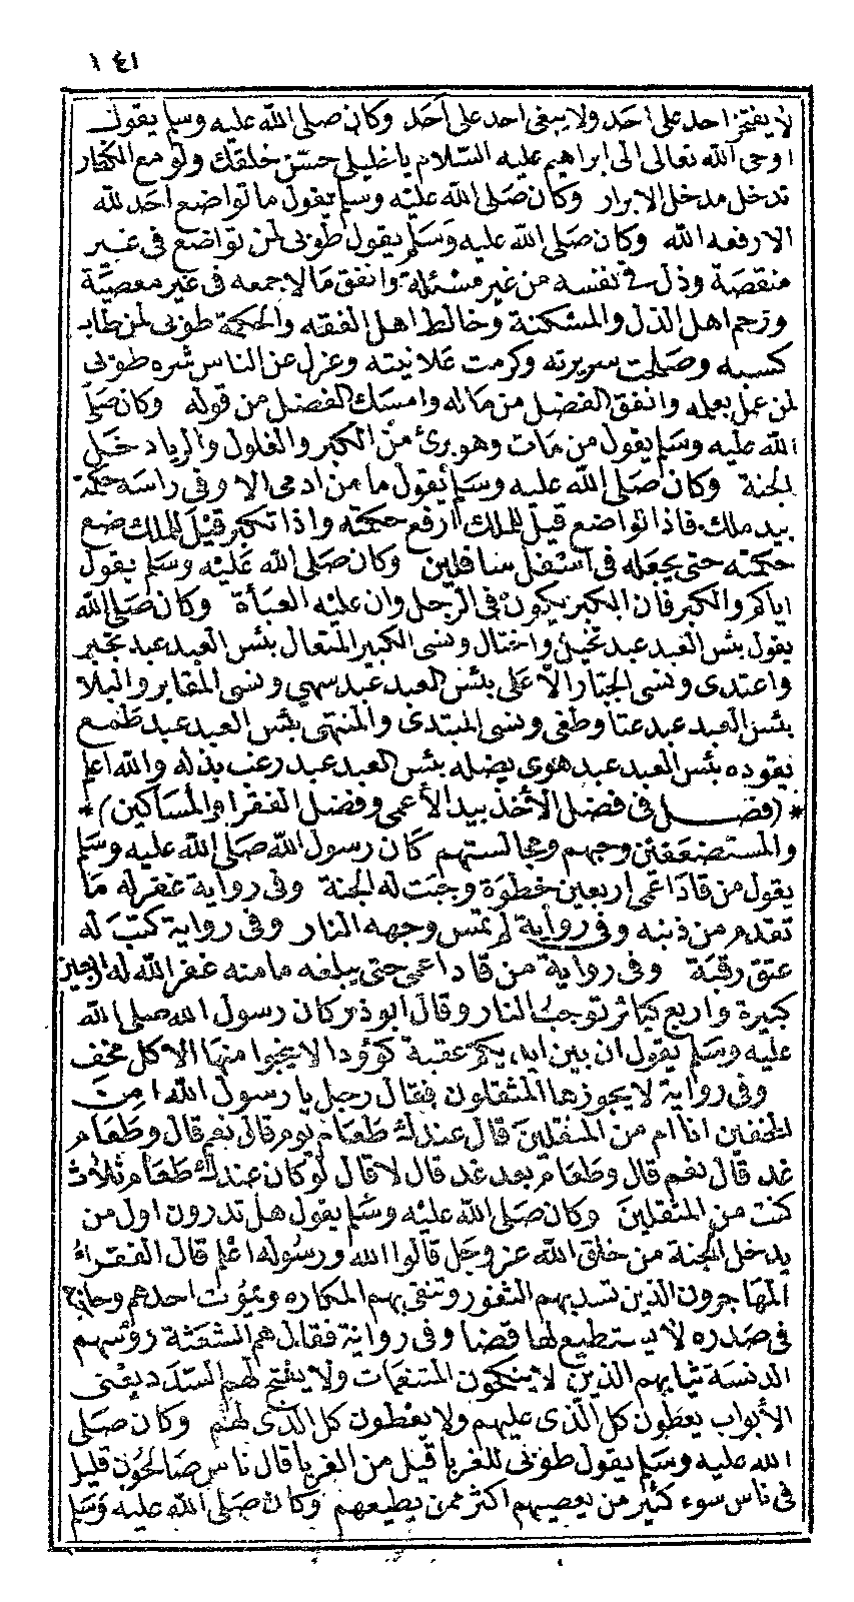 ١٤١
لا يفتخر احد على احد ولا يبغى احد على أحد وكان صلى الله عليه وسلم يقول
اوحى الله تعالى الى ابراهيم عليه السلام يا خليلى حسن خلقك ولو مع الكفار
تدخل مدخل الابرار وكان صلى الله عليه وسلم يقول ما تواضع احد لله
الا رفعه الله وكان صلى الله عليه وسلم يقول طوبى لمن تواضع فى غير
منقصة وذل فى نفسه من غير مسئلة وانفق مالا جمعه فى غير معصية
ورحم اهل الذل والمسكنة وخالط اهل الفقه والحكمة طوبى لمن طاب
كسبه وصلحت سريرته وكرمت علانيته وعزل عن الناس شره طوبى
لمن عمل بعلمه وانفق الفضل من ماله وامسك الفضل من قوله وكان صلى
الله عليه وسلم يقول من مات وهو برئ من الكبر والغلول والريا دخل
الجنة وكان صلى الله عليه وسلم يقول ما من ادمى الا وفى راسه حكمة
بيد ملك فاذا تواضع قيل للملك ارفع حكمته واذا تكبر قيل للملك ضع
حكمته حتى يجعله فى اسفل سافلين وكان صلى الله عليه وسلم يقول
اياكم والكبر فان الكبر يكون فى الرجل وان عليه العبأة وكان صلى الله
يقول بئس العبد عبد تخيل واختال ونسى الكبير المتعال بئس العبد عبد تجبر
واعتدى ونسى الجبار الاعلى بئس العبد عبد سهى ونسى المقابر والبلا
بئس العبد عبد عتا وطغى ونسى المبتدى والمنتهى بئس العبد عبد طمع
يقوده بئس العبد عبد هوى يضله بئس العبد عبد رغب يذله والله اعلم
* (فصل فى فضل الأخذ بيد الأعمى وفضل الفقراء والمساكين) *
والمستضعفين وحبهم ومجالستهم كان رسول الله صلى الله عليه وسلم
يقول من قاد اعمى اربعين خطوة وجبت له الجنة وفى رواية غفر له ما
تقدم من ذنبه وفى رواية لم تمس وجهه النار وفى رواية كتب له
عتق رقبة وفى رواية من قاد اعمى حتى يبلغه مامنه غفر الله له اربعين
كبيرة واربع كبائر توجب النار وقال ابو ذر كان رسول الله صلى الله
عليه وسلم يقول ان بين ايديكم عقبة كؤودا لا ينجوا منها الا كل مخف
وفى رواية لا يجوزها المثقلون فقال رجل يا رسول الله امن
المخفين انا ام من المثقلين قال عندك طعام يوم قال نعم قال وطعام
غد قال نعم قال وطعام بعد غد قال لا قال لو كان عندك طعام ثلاث
كنت من المثقلين وكان صلى الله عليه وسلم يقول هل تدرون اول من
يدخل الجنة من خلق الله عز وجل قالوا الله ورسوله اعلم قال الفقراء
المهاجرون الذين تسد بهم الثغور وتتقى بهم المكاره ويموت احدهم وحاجته
فى صدره لا يستطيع لها قضا وفى رواية فقال هم الشعثة رؤسهم
الدنسة ثيابهم الذين لا ينكحون المتنعمات ولا يفتح لهم السدد يعنى
الأبواب يعطون كل الذى عليهم ولا يعطون كل الذى لهم وكان صلى
الله عليه وسلم يقول طوبى للغربا قيل من الغربا قال ناس صالحون قليل
فى ناس سوء كثير من يعصيهم اكثر ممن يطيعهم وكان صلى الله عليه وسلم